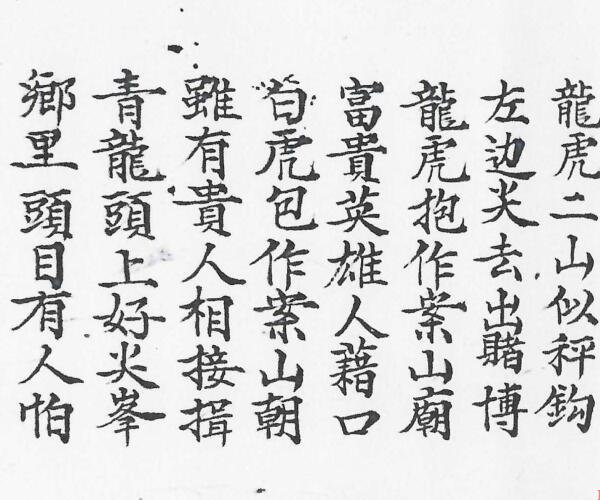 龍虎二山似秤鈎
左边尖去出賭博
龍虎抱作案山廟
富貴英雄人藉口
白虎包作案山朝
雖有貴人相接揖
青龍頭上好尖峯
鄉里頭目有人怕